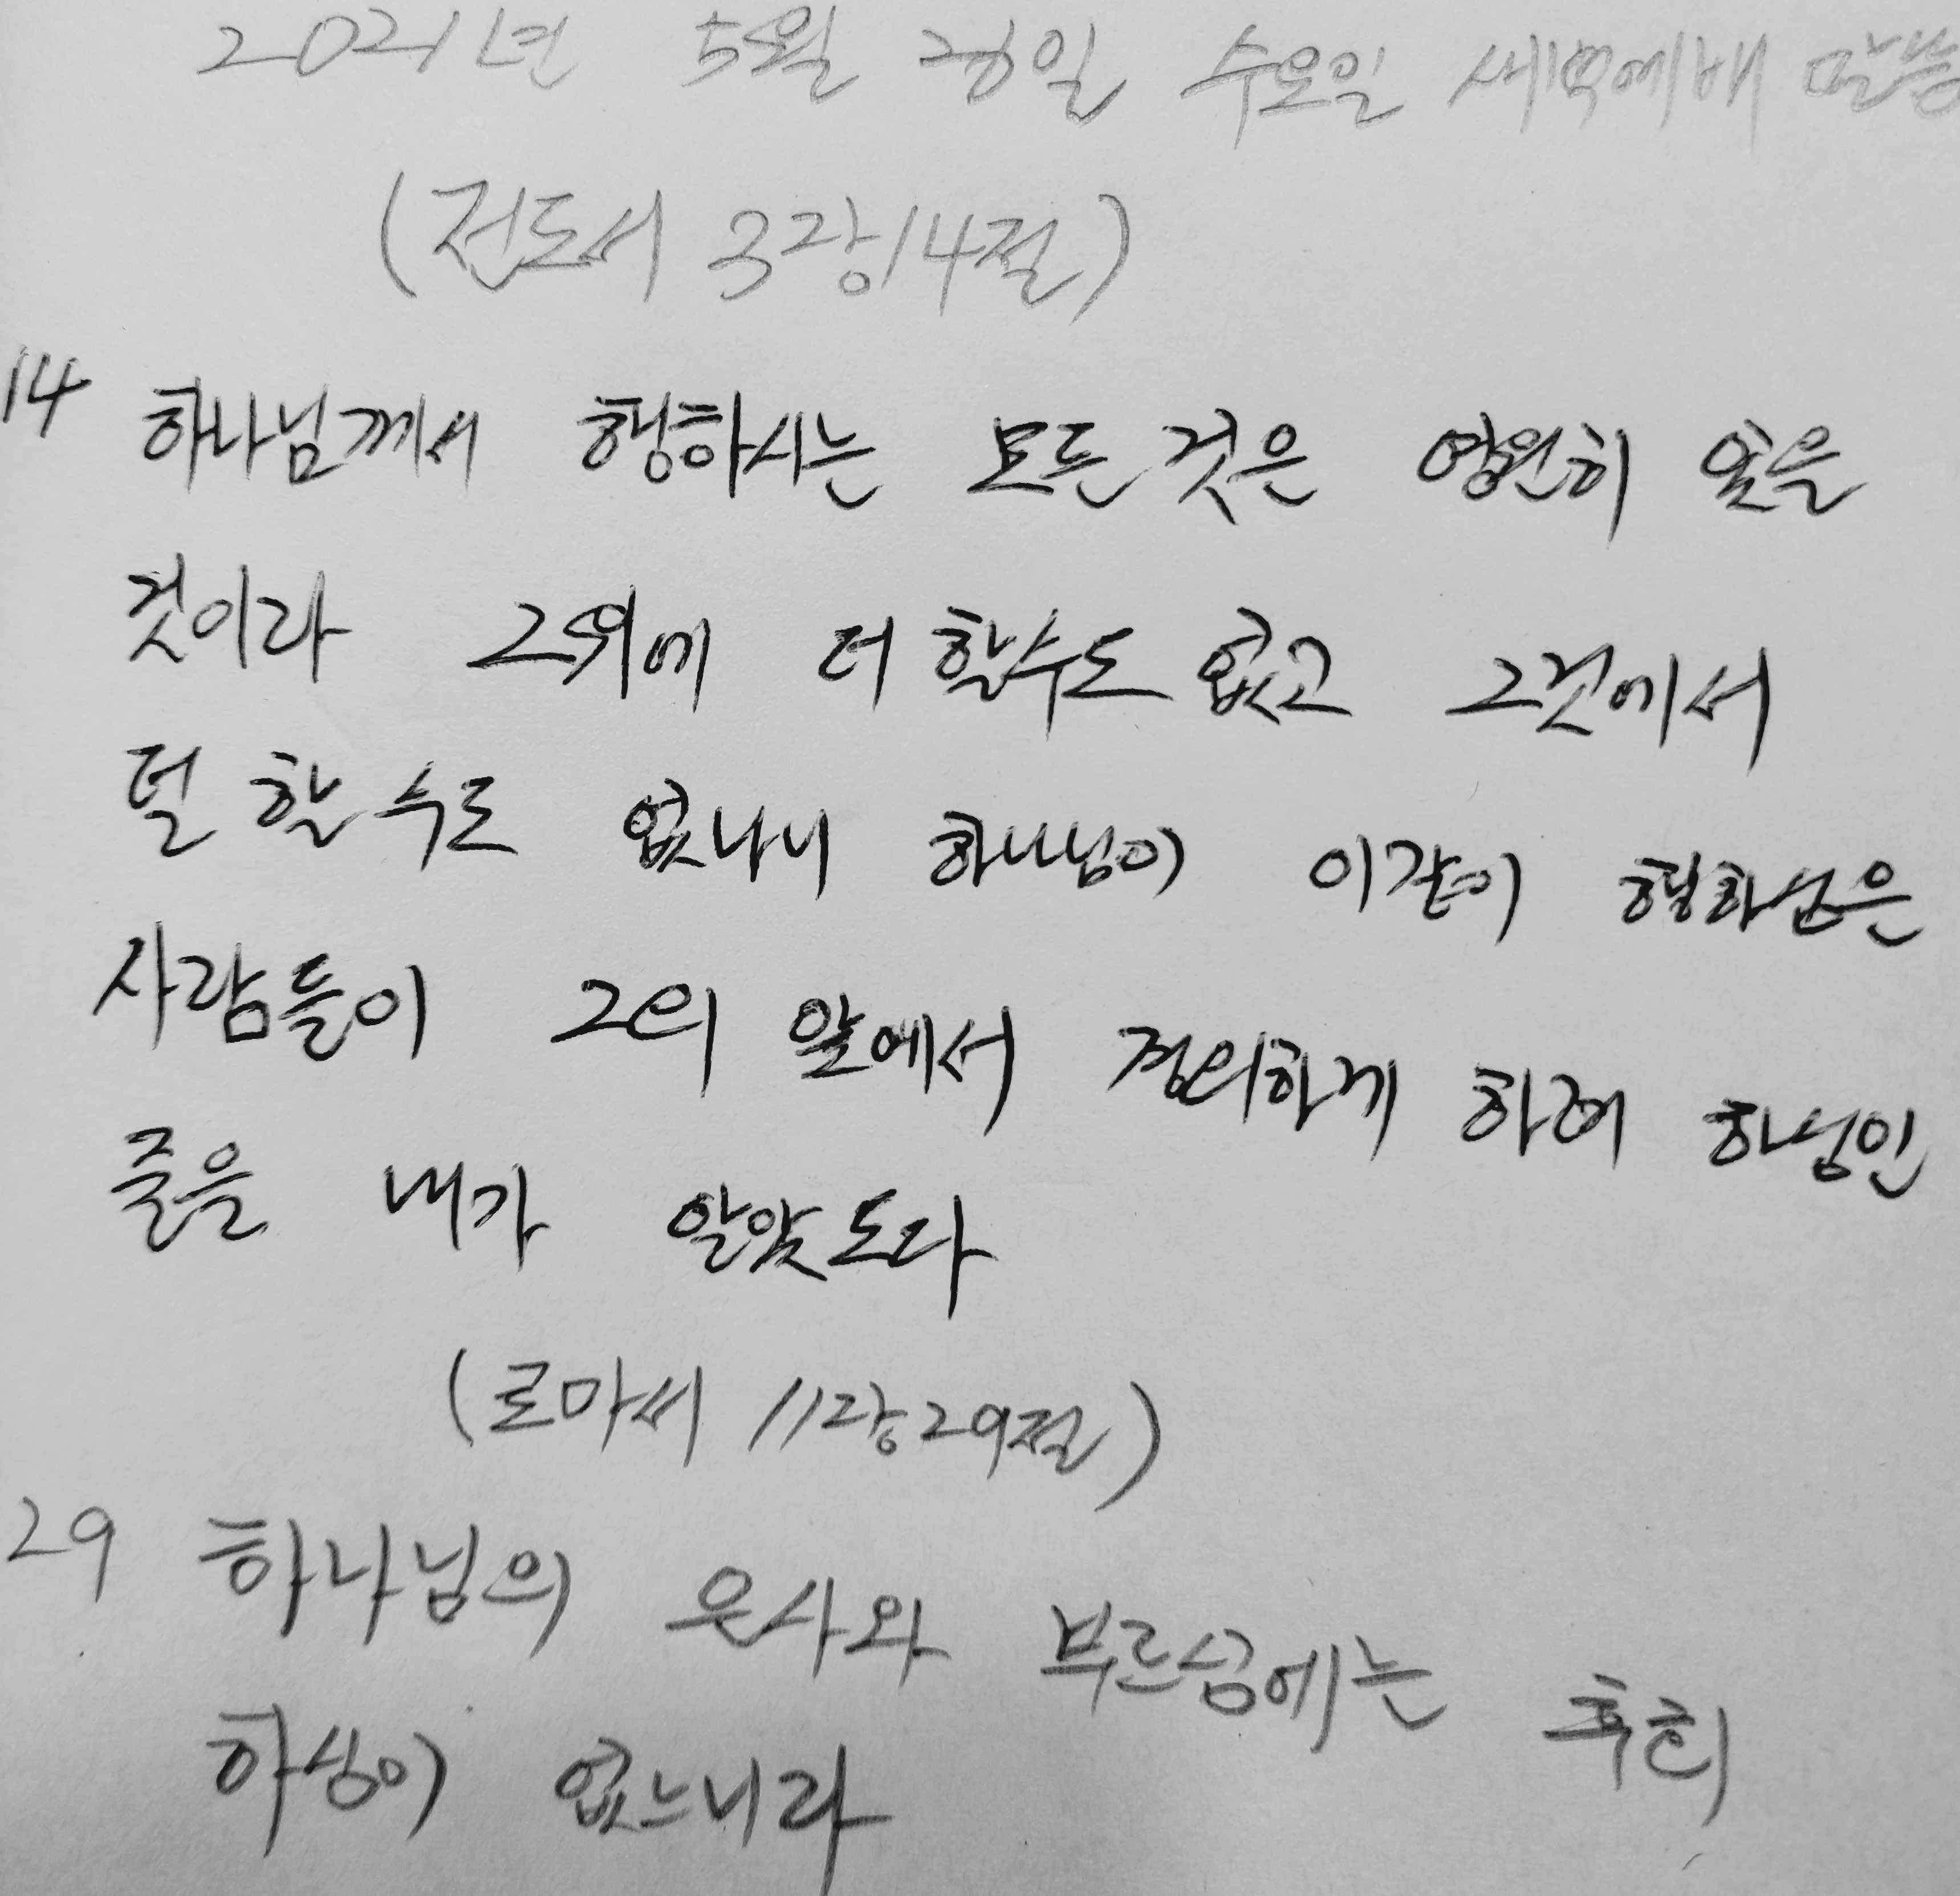 2021년 5월 26일 수요일 새벽예배 말씀
(전도서 3장14절)
14 하나님께서 행하시는 모든것은 영원히 있을
것이라 그위에 더 할수도 없고 그것에서
덜 할 수도 없나니 하나님이 이같이 행하심은
사람들이 그의 앞에서 경외하게 하려 하심인
줄을 내가 알았도다
(로마서 11장29절)
29 하나님의 은사와 부르심에는 후회
하심이 없느니라